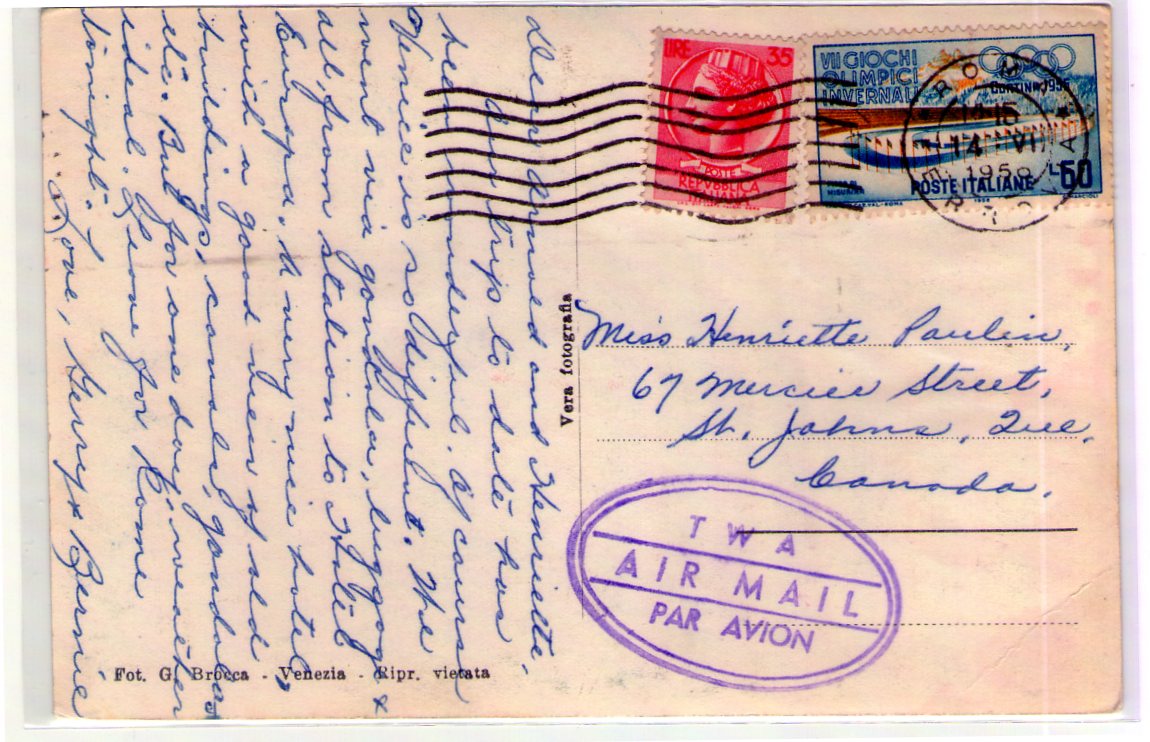 Dear Armed and Henriette,
Our trip to date has
been wonderful. Of course
Venice is so different. We
went via gondola, luggage &
all from station to Hotel
Europa. A very nice hotel
with a good view of old
buildings, canals, gondolas
etc. But for one day, weather
ideal. Leave for Rome
tonight.
Love, Gerry & Bernie
Vera fotografia
Fot. G. Brocca - Venezia - Ripr. vietata
LIRE 35
POSTE
REPUBBLICA
ITALIANA
VII GIOCHI
OLIMPICI
INVERNALI
CORTINA 1956
MISURINA
POSTE ITALIANE
L. 60
ROMA
14 VI
1956
Miss Henriette Paulin,
67 Mercier Street,
St. Johns, Que.
Canada.
TWA
AIR MAIL
PAR AVION